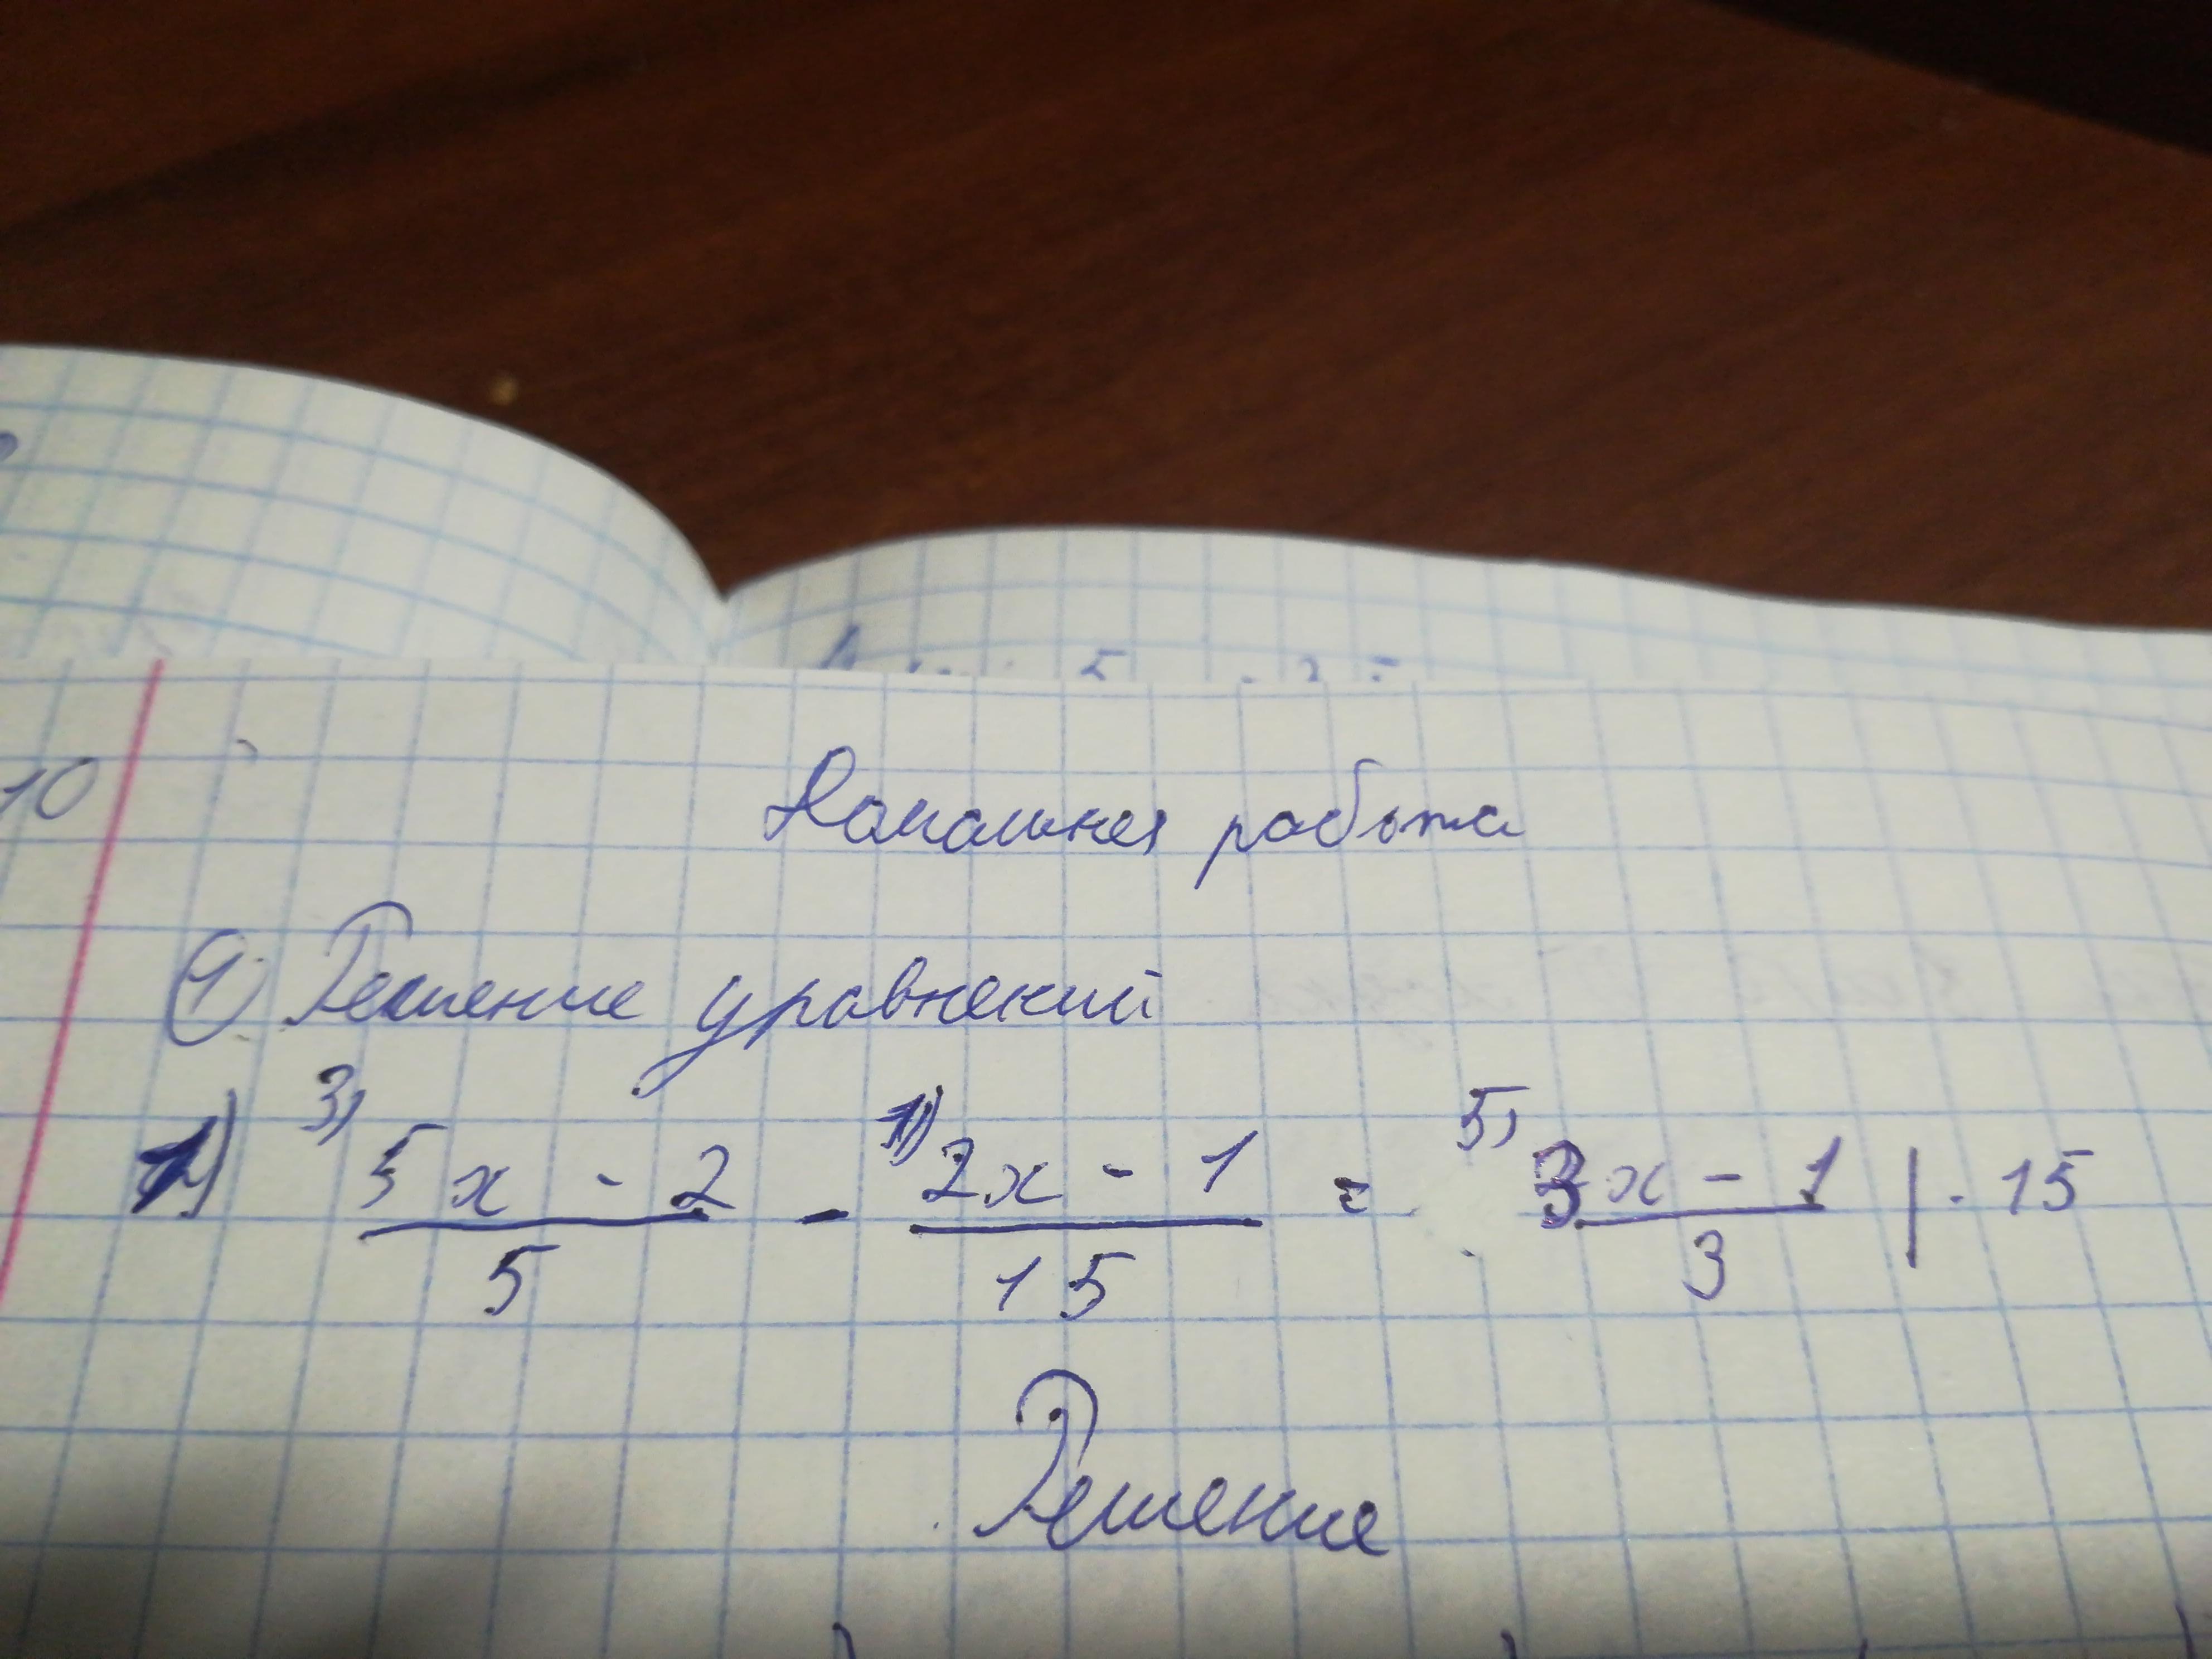 10
Домашняя работа
① Решение уравнений
1) 3) 5x - 2 / 5 - 1) 2x - 1 / 15 = 5) 3x - 1 / 3 | · 15
Решение